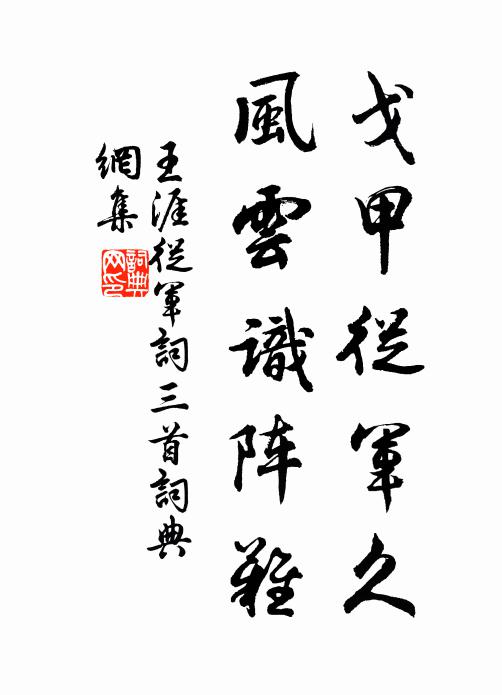 戈甲從軍久
風雲識阵難
王涯從軍詞三首詞典
網集
詞典网印